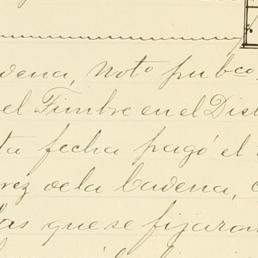 dena, Noto pubco,
el Timbre en el Dist
ta fecha pagó el
rez de la Cadena,
las que se fijaron